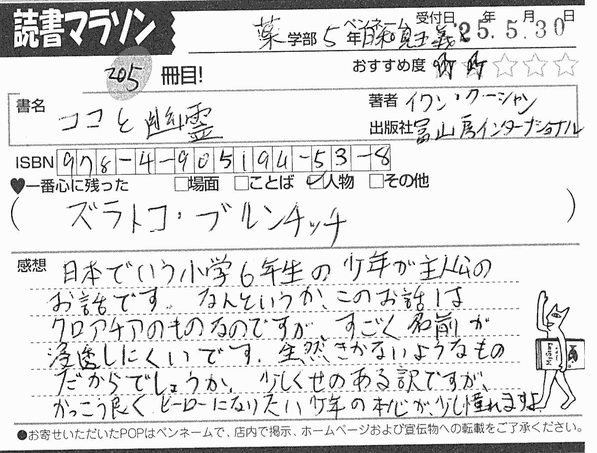 読書マラソン
薬学部 5年 ペンネーム 日和見主義 受付日 25年5月30日
205冊目!
おすすめ度 ★★☆☆☆
書名 ココと幽霊
著者 イワン・クーシャン
出版社 冨山房インターナショナル
ISBN 978-4-905194-53-8
♥一番心に残った □場面 □ことば ☑人物 □その他
(ズラトコ・ブルンチッチ)
感想 日本でいう小学6年生の少年が主人公の
お話です。なんというか、このお話は
クロアチアのものなのですが、すごく名前が
浸透しにくいです。全然きかないようなもの
だからでしょうか。少しくせのある訳ですが、
かっこう良くヒーローになりたい少年の本心が、少し憧れますよ。
●お寄せいただいたPOPはペンネームで、店内で掲示、ホームページおよび宣伝物への転載をご了承ください。